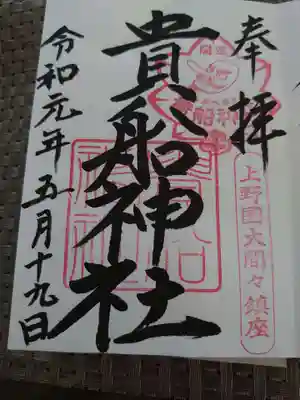 奉拝
上野國大間々鎮座
開運
貴船神社
令和元年五月十九日